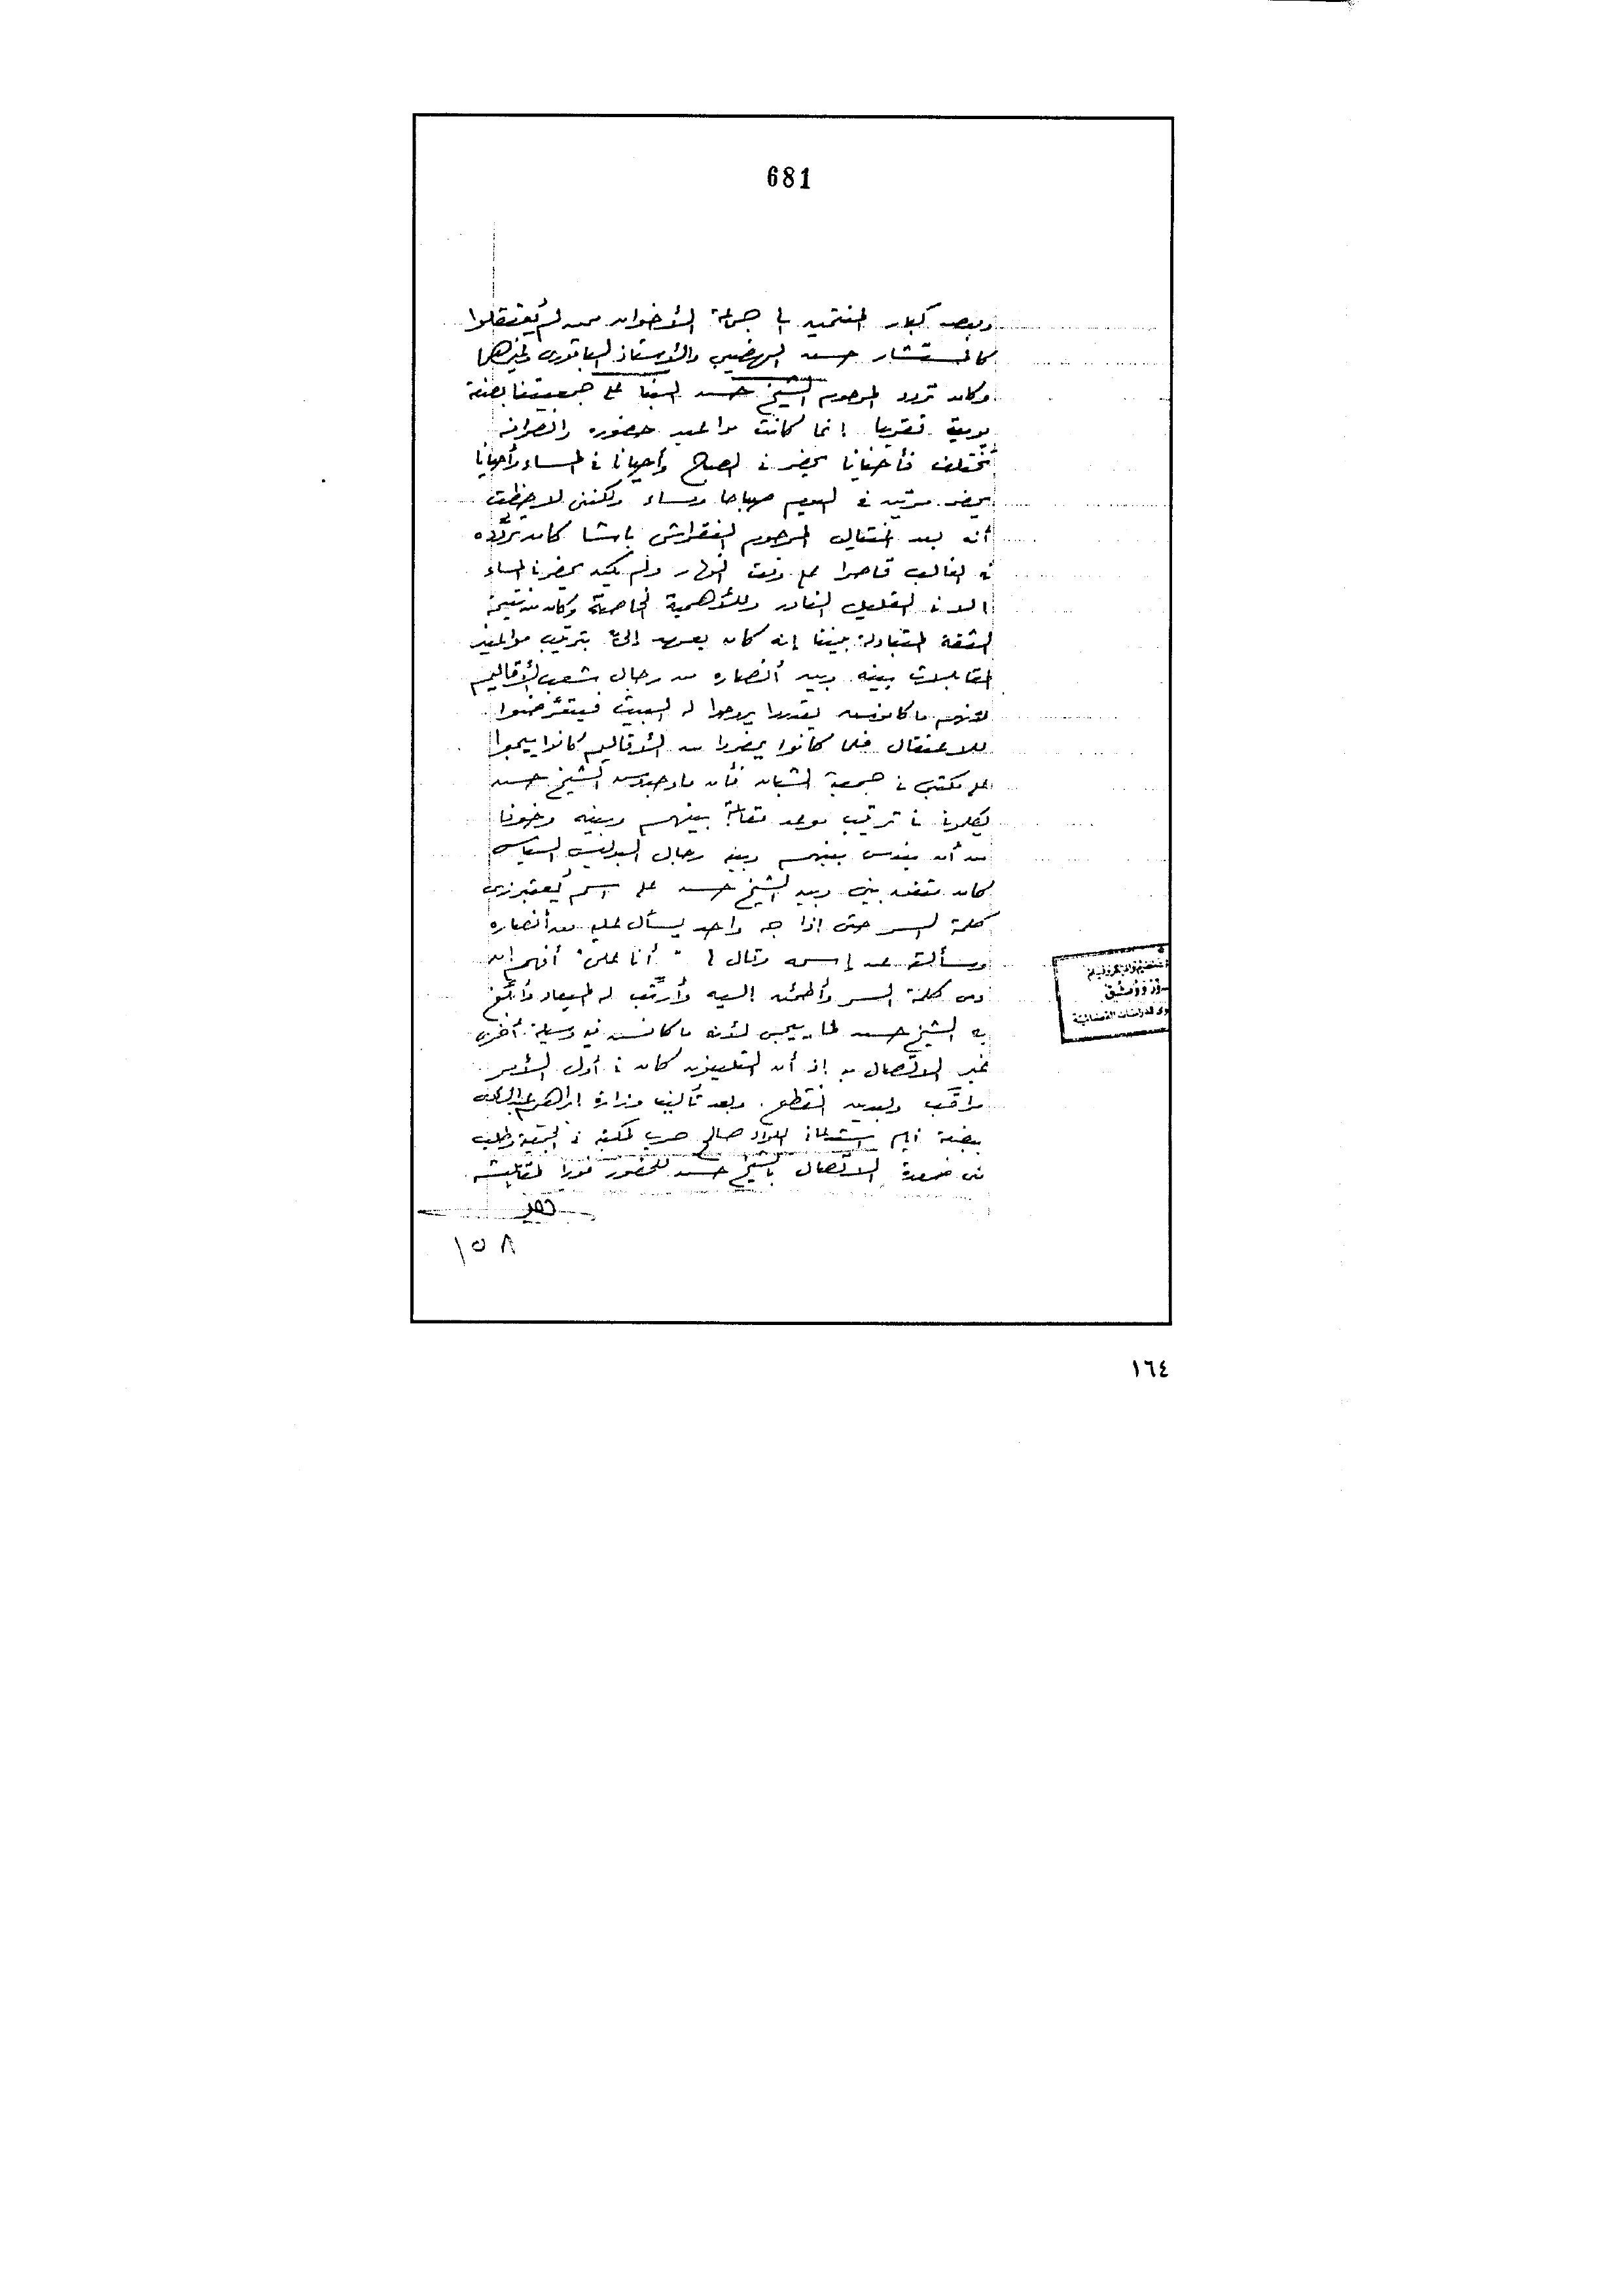 681
وبعض كبار المنتمين الى جماعة الأخوان ممن لم يُعتقلوا
كالمستشار حسن الهضيبى والأستاذ الباقورى وغيرهما
وكان تردد المرحوم الشيخ حسن البنا على جمعيتنا بصفة
يومية تقريبا إنما كانت مواعيد حضوره وانصرافه
تختلف فأحيانا يحضر فى الصباح وأحيانا فى المساء وأحيانا
يحضر مرتين فى اليوم صباحا ومساء ولكننى لاحظت
أنه بعد اغتيال المرحوم النقراشى باشا كان تردّده
فى الغالب قاصرا على وقت النهار ولم يكن يحضر فى المساء
الا فى القليل النادر وللأهمية الخاصة وكان من نتيجة
الثقة المتبادلة بيننا إنه كان يعهد إلىّ بترتيب مواعيد
المقابلات بينه وبين أنصاره من رجال شعب الأقاليم
لأنهم ما كانوش يقدروا يروحوا له البيت فيتعرّضوا
للاعتقال فلما كانوا يحضروا من الأقاليم كانوا ييجوا
على مكتبى فى جمعية الشبان فأن ما وجدوش الشيخ حسن
يكلمونى فى ترتيب موعد مقابلة بينهم وبينه وخوفا
من أن يندس بينهم وبينه رجال البوليس السياسى
كان متفق بينى وبين الشيخ حسن على اسم يُعتبر زى
كلمة السر حتى إذا جه واحد يسأل عليه من أنصاره
وسألته عن إسمه وقال لى " أنا على " أفهم ان
دى كلمة السر وأطمئن اليه وأرتّب له الميعاد وأبلّغ
به الشيخ حسن لما ييجى لأنه ما كانش فيه وسيلة أخرى
غير الاتصال به إذ أن التليفون كان فى أول الأمر
مراقب وبعدين انقطع. وبعد تأليف وزارة ابراهيم عبد الهادى
ببضعة أيام استدعانى اللواء صالح حرب لمكتبه فى الجمعية وطلب
منى ضرورة الاتصال بالشيخ حسن للحضور فورا لمقابلته
١٥٨
١٦٤